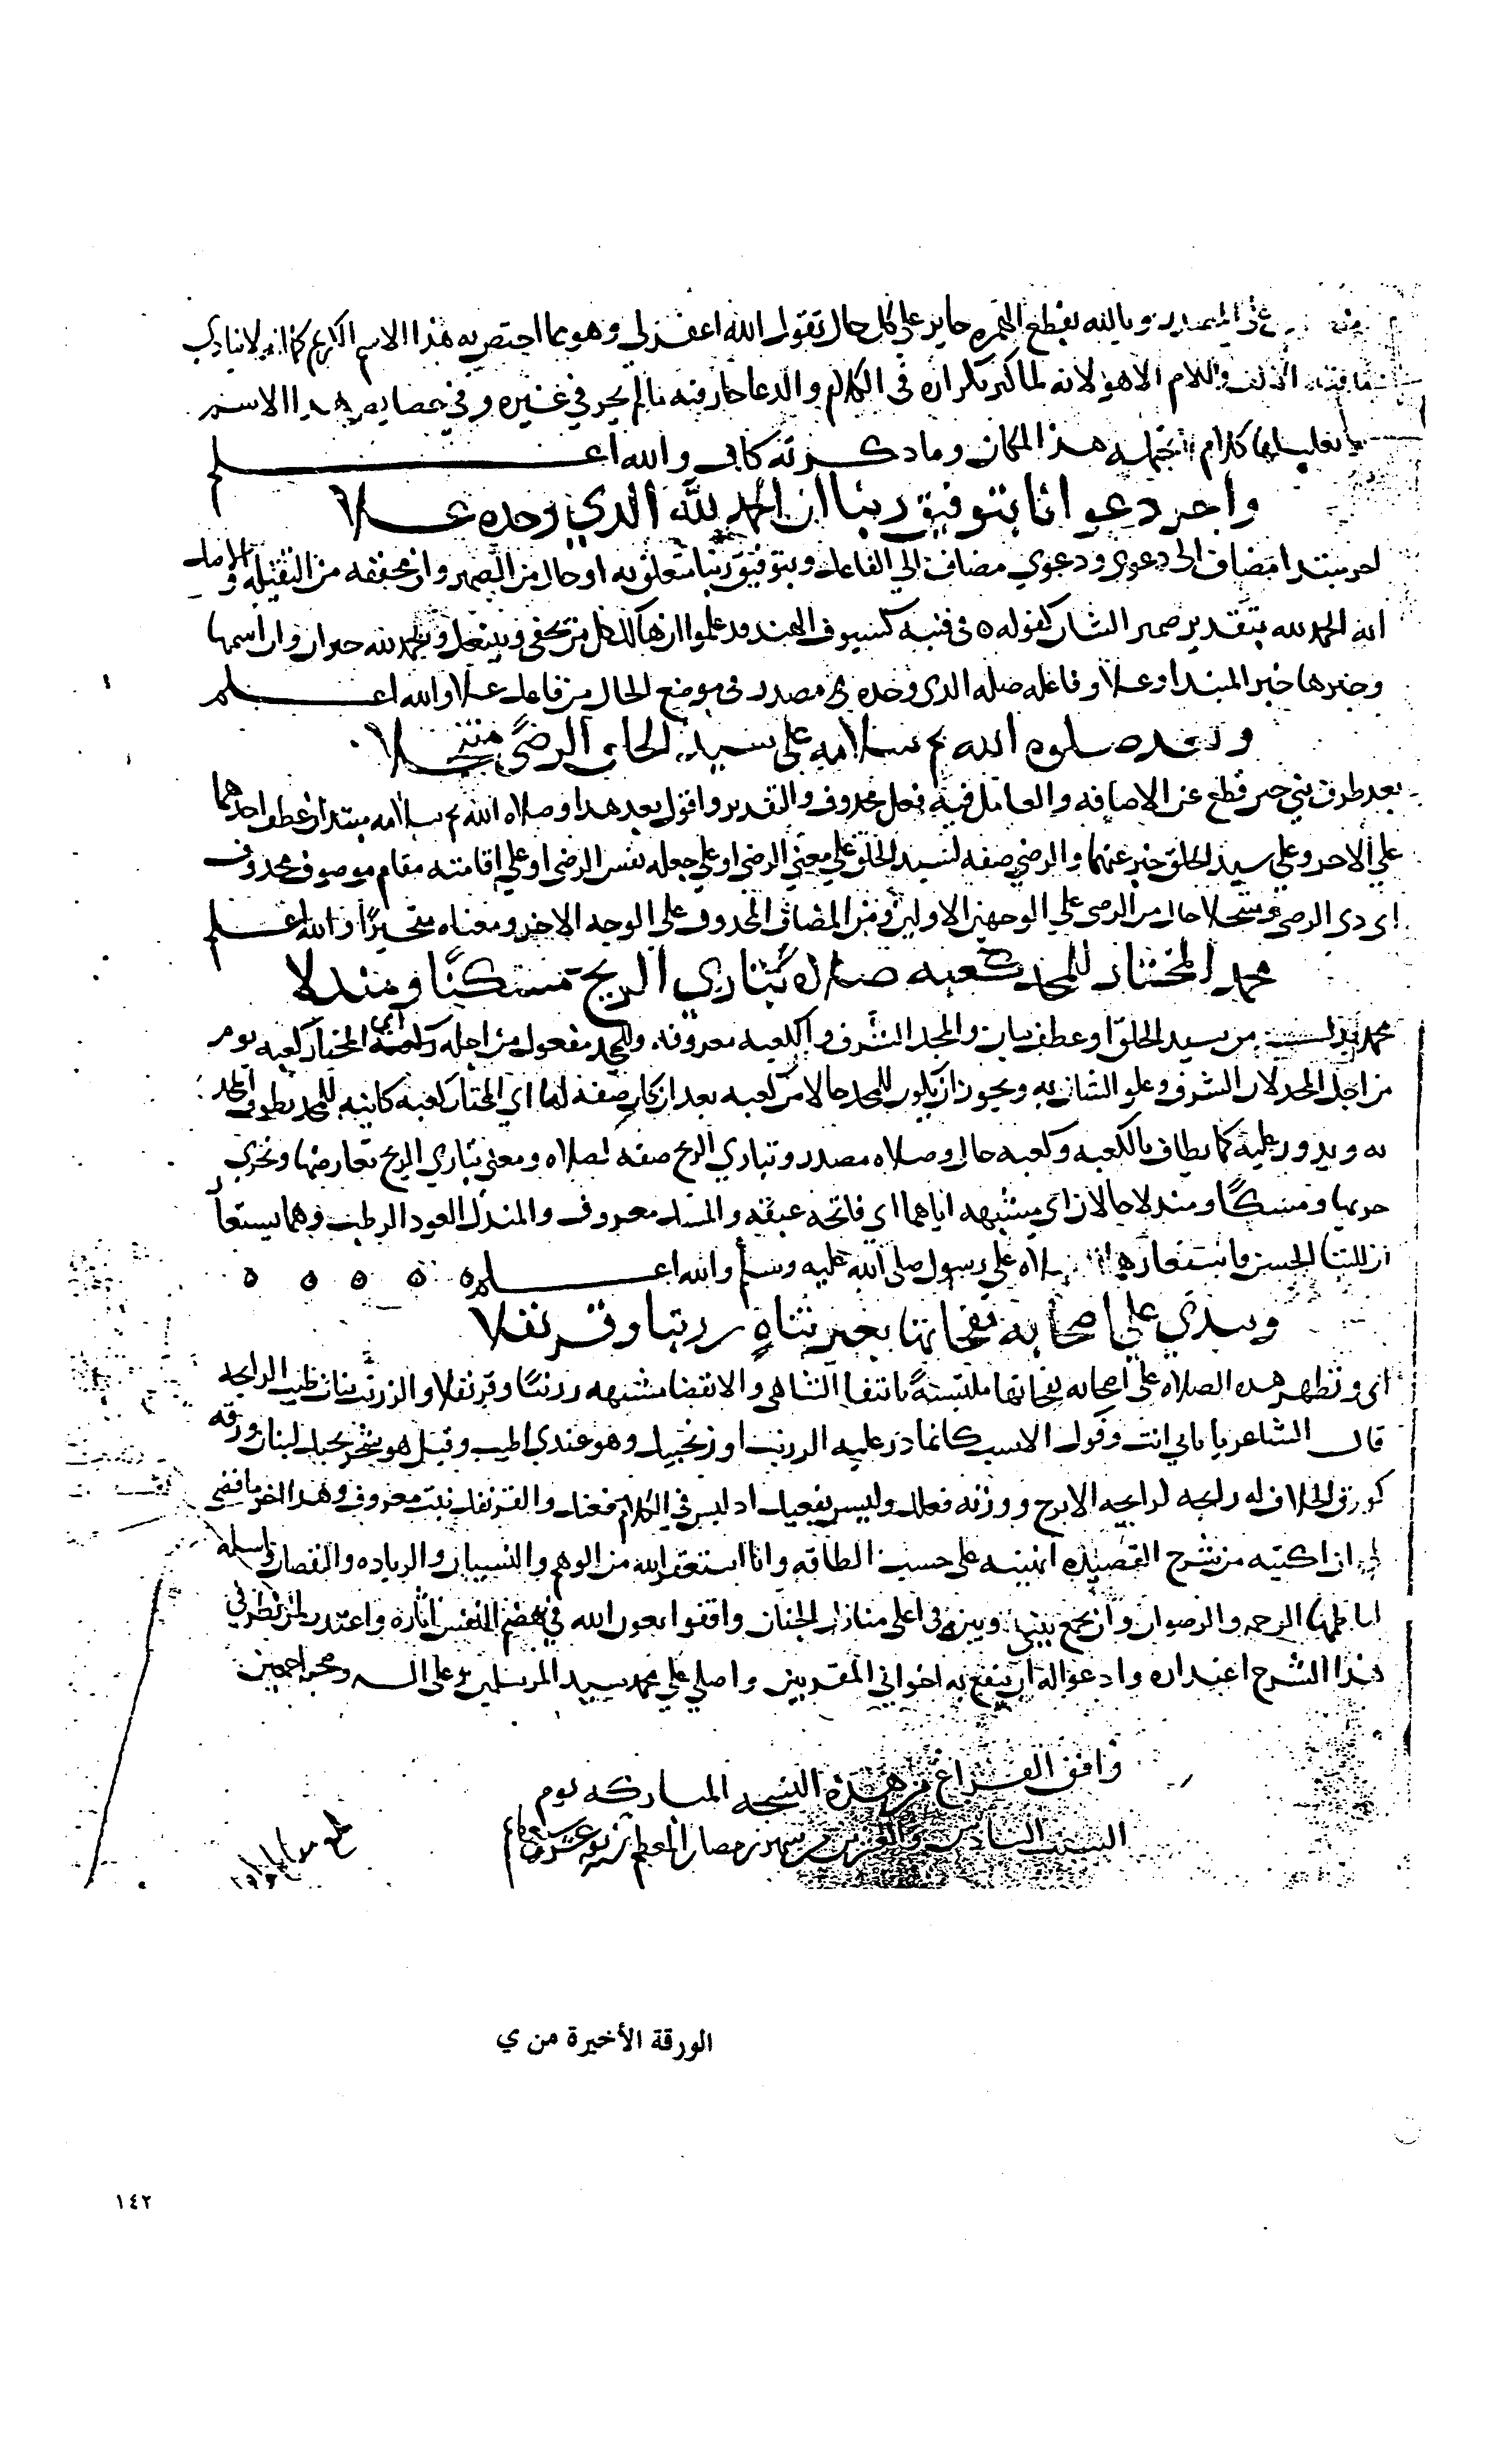 المصدر وبالله بقطع الهمزه جايز على كل حال تقول الله اغفر لي وهو مما اختص به هذا الاسم الكريم كما انه لا ينادي
ما فيه الالف واللام الا هو لانه لما كثر تكراره في الكلام والدعا جاز فيه ما لم يجز في غيره وفي خصايص هذا الاسم
كلام لا يحتمله هذا المكان وما ذكرته كاف والله اعلم
واخر دعوانا بتوفيق ربنا ان الحمد لله الذي وحده علا
اخر مبتدا مضاف الى دعوي ودعوي مضاف الي الفاعل وبتوفيق ربنا متعلق به او حال من الضمير وان مخففه من الثقيله والاصل
انه الحمد لله بتقدير ضمير الشان كقوله ه في فتيه كسيوف الهند قد علموا ان هالك كل من يحفى وينتعل والحمد لله خبر ان وان اسمها
وخبرها خبر المبتدا وعلا وفاعله صله الذي وحده مصدر في موضع الحال من فاعل علا والله اعلم
وبعد صلوه الله ثم سلامه على سيد الخلق الرضي متنخلا
بعد ظرف بني حين قطع عن الاضافه والعامل فيه فعل محذوف والتقدير واقول بعد هذا وصلاه الله ثم سلامه مبتدان عطف احدهما
علي الاخر وعلي سيد الخلق خبر عنهما والرضي صفه لسيد الخلق علي معني الرضي او علي جعله نفس الرضي او علي اقامته مقام موصوف محذوف
اي ذي الرضي ومتنخلا حال من الرضي علي الوجهين الاولين ومن المضاف المحذوف علي الوجه الاخر ومعناه متخيرا والله اعلم
محمد المختار للمجد كعبه صلاه تباري الريح مسكا ومندلا
محمد بدل من سيد الخلق او عطف بيان والمجد الشرف والكعبه معروفه وللمجد مفعول من اجله اي المختار كعبه يوم
من اجل المجد لان الشرف وعلو الشان به ويجوز ان يكون للمجد حالا من كعبه بعد ان كان صفه لها اي المختار كعبه كاينه للمجد يطوف المجد
به ويدور عليه كما يطاف بالكعبه وكعبه حال وصلاه مصدر وتباري الريح صفه لصلاه ومعني تباري الريح تعارضها وتجري
جريها ومسكا ومندلا حالان اي مشبهه اياهما اي فاتحه عبقه والمسك معروف والمندل العود الرطب وهما يستعا
ران للثنا الحسن فاستعارهما للصلاه علي رسول صلى الله عليه وسلم والله اعلم ه ه ه ه ه
وتبدي علي اصحابه نفحاتها بغير تناه زرنبا وقرنفلا
اي وتظهر هذه الصلاه على اصحابه نفحاتها ملتبسة بانتفا التناهي والانقضا مشبهه زرنبا وقرنفلا والزرنب نبات طيب الرايحه
قال الشاعر يا بابي انت وفوك الاشنب كانما ذر عليه الزرنب او زنجبيل وهو عندي اطيب وقيل هو شجر بجبل لبنان ورقه
كورق الخلاف له رايحه كرايحه الاترج ووزنه فعلل وليس بفعيل اذ ليس في الكلام فعنل والقرنفل نبت معروف وهذا اخر ما قضي
لي ان اكتبه من شرح القصيده اتيته على حسب الطاقه وانا استغفر الله من الوهم والنسيان والزياده والنقصان واسله
لناظمها الرحمه والرضوان وان يجمع بيني وبينه في اعلى منازل الجنان واقفوا بعون الله في هضم النفس اثاره واعتذر لمن نظر في
هذا الشرح اعتذاره وادعوا الله ان ينفع به اخواني المقربين واصلي علي محمد سيد المرسلين وعلى اله وصحبه اجمعين
وافق الفراغ من هذه النسخه المباركه يوم
السبت السادس والعشرين من شهر رمضان المعظم
الورقة الأخيرة من ي
١٤٢